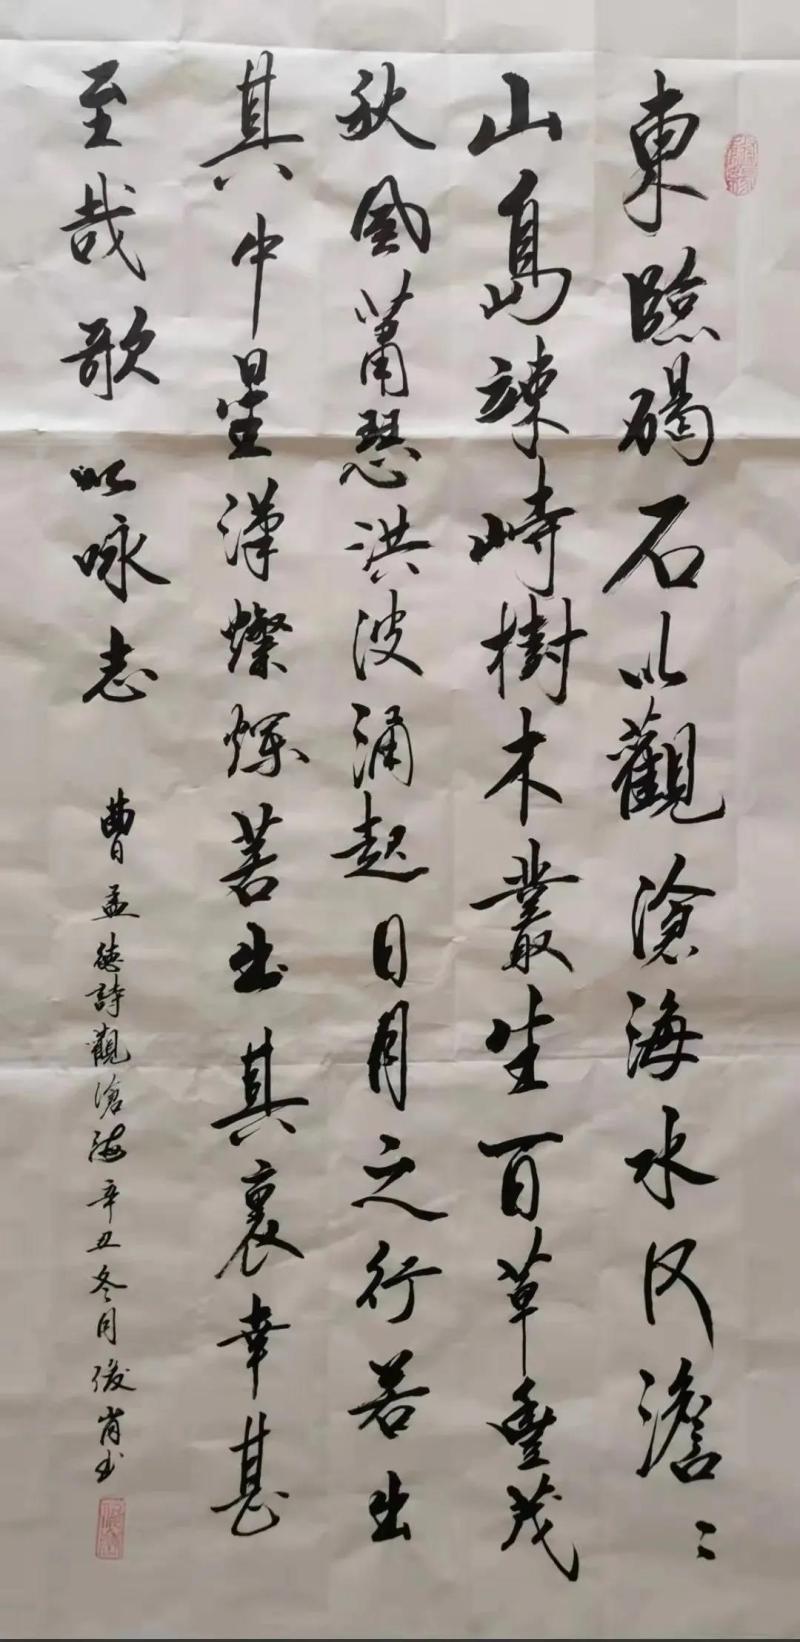 東臨碣石以觀滄海水何澹〻
山島竦峙樹木叢生百草豐茂
秋風蕭瑟洪波涌起日月之行若出
其中星漢燦爛若出其裏幸甚
至哉歌以咏志
曹孟德詩觀滄海辛丑冬月俊肖书